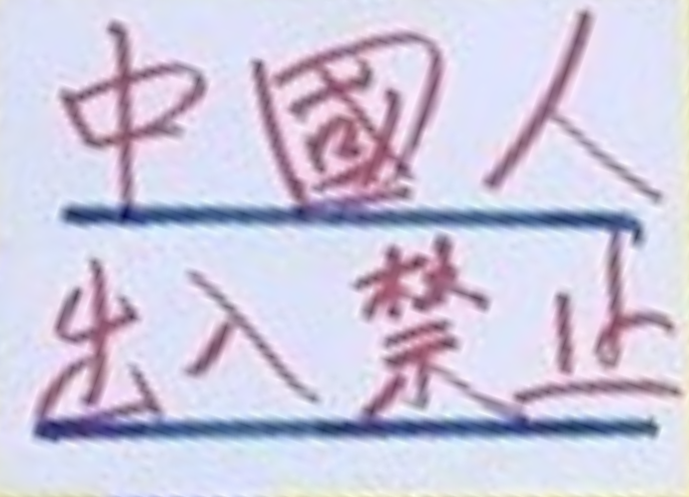 中國人
出入禁止